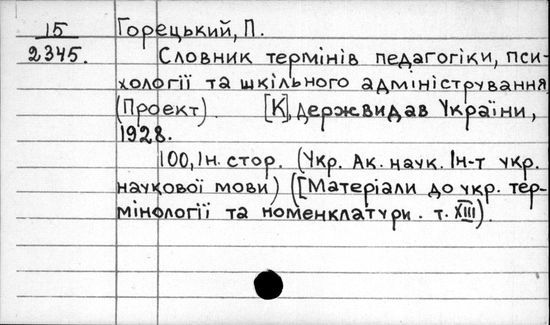 15
2345.
Горецький, П.
Словник термінів педагогіки, пси-
хології та шкільного адміністрування
(Проект). [К], Держвидав України,
1928.
100, Ін. стор. (Укр. Ак. наук. Ін-т укр.
наукової мови) ([Матеріали до укр. тер-
мінології та номенклатури. т. XIII).